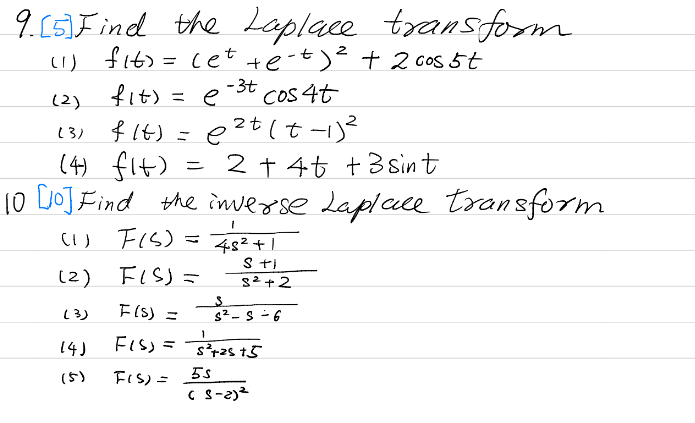 9. [5] Find the Laplace transform
(1) f(t) = (e^t + e^-t)^2 + 2 cos 5t
(2) f(t) = e^-3t cos 4t
(3) f(t) = e^2t (t - 1)^2
(4) f(t) = 2 + 4t + 3 sin t
10 [10] Find the inverse Laplace transform
(1) F(s) = 1/(4s^2 + 1)
(2) F(s) = (s + 1)/(s^2 + 2)
(3) F(s) = s/(s^2 - s - 6)
(4) F(s) = 1/(s^2 + 2s + 5)
(5) F(s) = 5s/(s - 2)^2